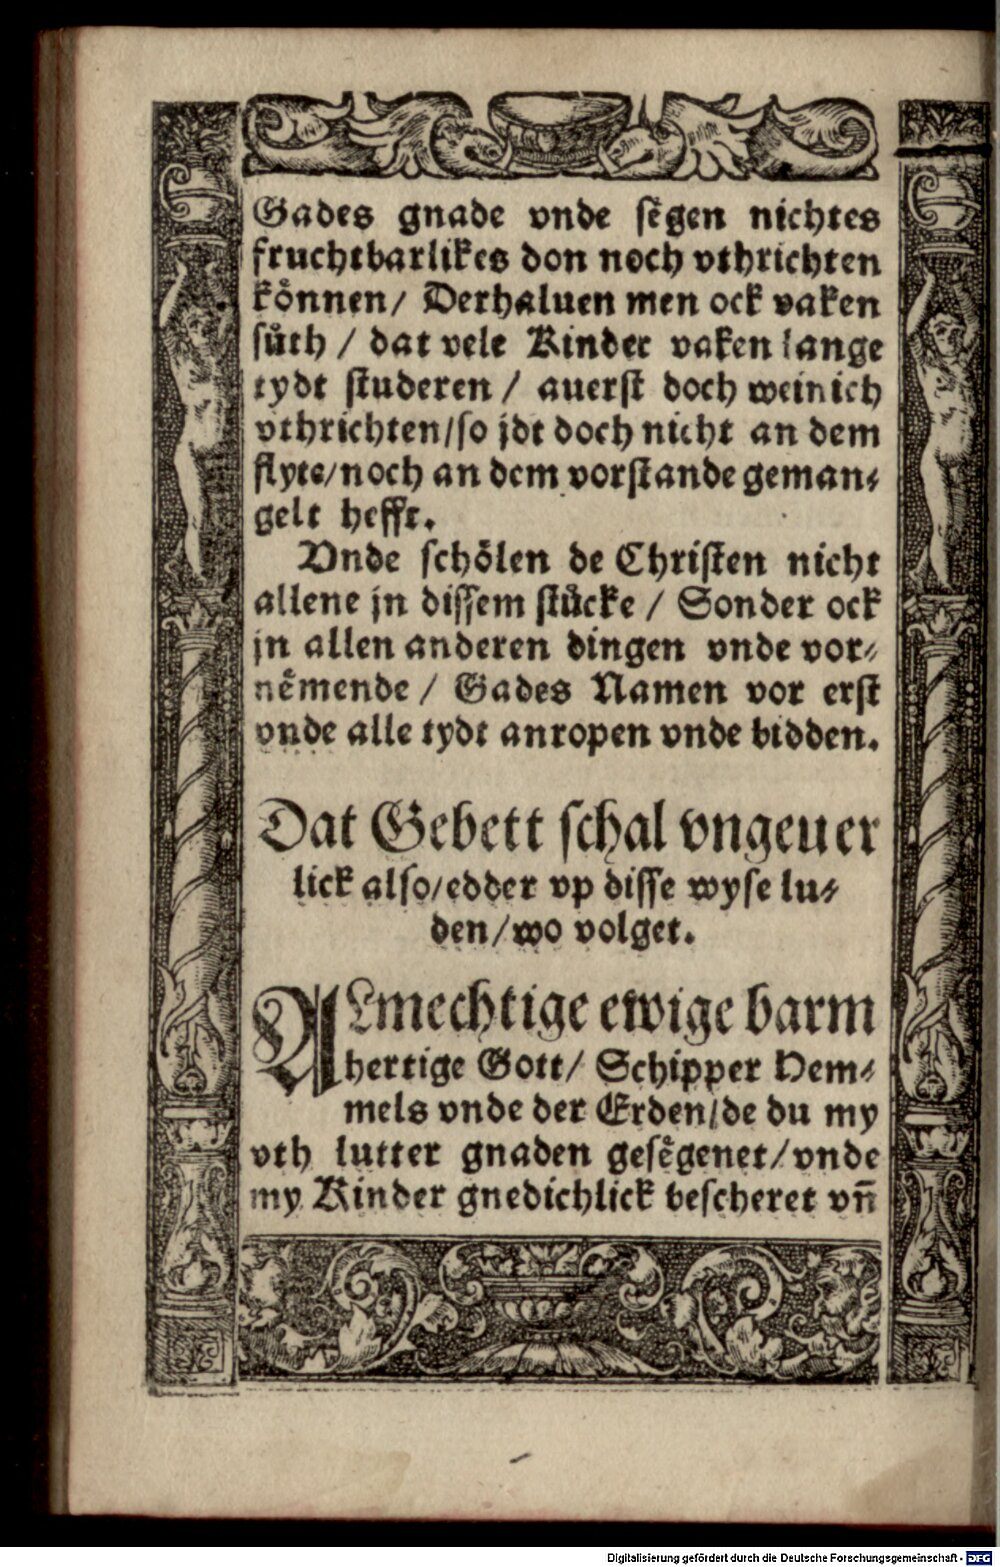 Gades gnade vnde sēgen nichtes
fruchtbarlikes don noch vthrichten
koͤnnen/ Derhaluen men ock vaken
suͤth / dat vele Kinder vaken lange
tydt studeren / auerst doch weinich
vthrichten/so jdt doch nicht an dem
flyte/noch an dem vorstande geman⸗
gelt hefft.
Vnde schoͤlen de Christen nicht
allene jn dissem stuͤcke / Sonder ock
jn allen anderen dingen vnde vor⸗
nēmende / Gades Namen vor erst
vnde alle tydt anropen vnde bidden.
Dat Gebett schal vngeuer
lick also/edder vp disse wyse lu⸗
den/wo volget.
ALmechtige ewige barm
hertige Gott/ Schipper Hem⸗
mels vnde der Erden/de du my
vth lutter gnaden gesēgenet/vnde
my Kinder gnedichlick bescheret vn̄
Digitalisierung gefördert durch die Deutsche Forschungsgemeinschaft - DFG